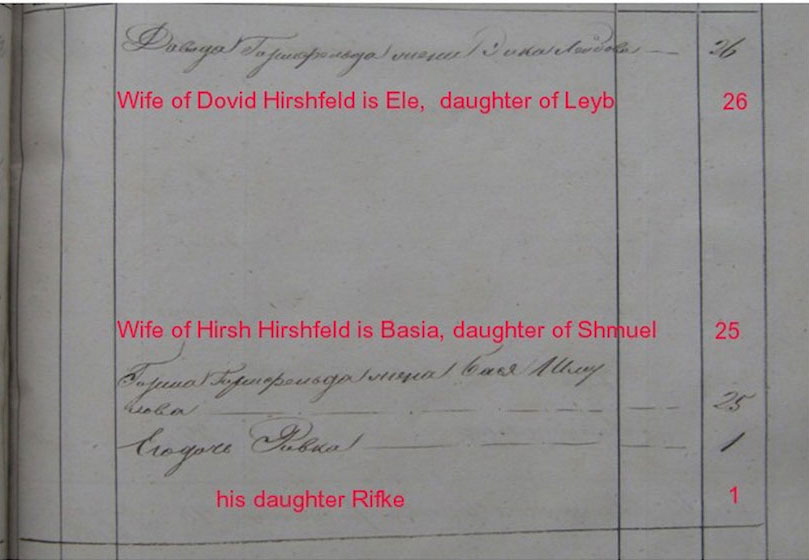 Давыда Гиршфельда жена Элка Лейбова 26
Wife of Dovid Hirshfeld is Ele, daughter of Leyb 26
Wife of Hirsh Hirshfeld is Basia, daughter of Shmuel 25
Гирша Гиршфельда жена Бася Шму
лова 25
Его дочь Ривка 1
his daughter Rifke 1